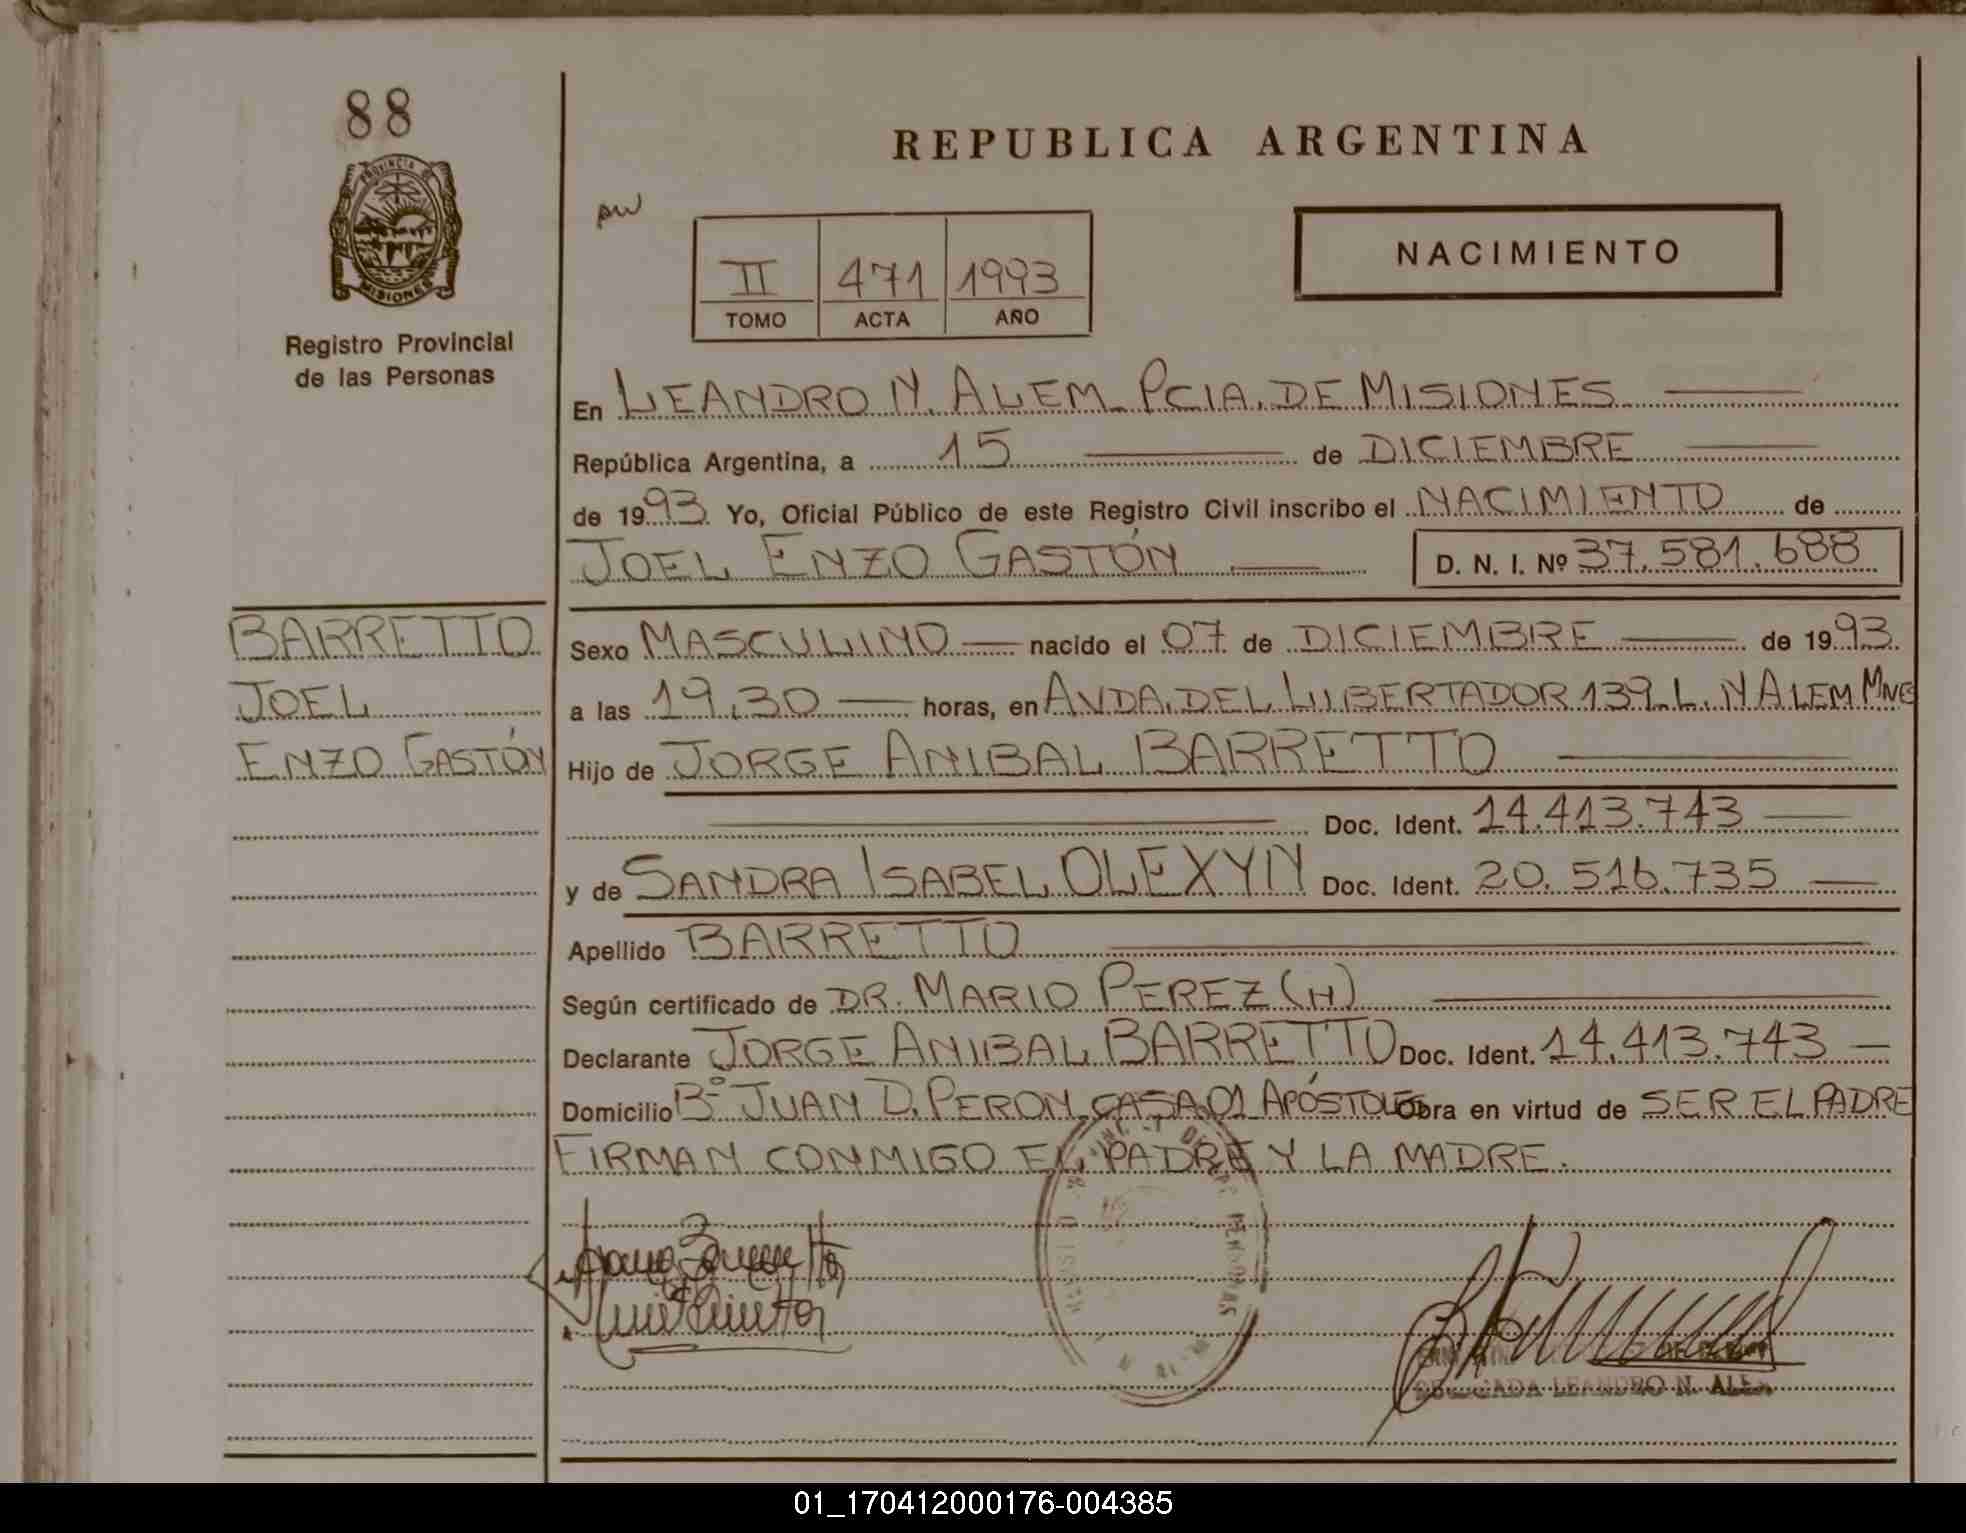 88
PROVINCIA DE
MISIONES
Registro Provincial
de las Personas
REPUBLICA ARGENTINA
II 471 1993
TOMO ACTA AÑO
NACIMIENTO
En LEANDRO N. ALEM PCIA. DE MISIONES
República Argentina, a 15 de DICIEMBRE
de 1993 Yo, Oficial Público de este Registro Civil inscribo el NACIMIENTO de
JOEL ENZO GASTÓN D. N. I. Nº 37.581.688
BARRETTO
JOEL
ENZO GASTÓN
Sexo MASCULINO nacido el 07 de DICIEMBRE de 1993
a las 19,30 horas, en AVDA. DEL LIBERTADOR 139 L. N ALEM MNES
Hijo de JORGE ANIBAL BARRETTO
Doc. Ident. 14.413.743
y de SANDRA ISABEL OLEXYN Doc. Ident. 20.516.735
Apellido BARRETTO
Según certificado de DR. MARIO PEREZ (H)
Declarante JORGE ANIBAL BARRETTO Doc. Ident. 14.413.743
Domicilio Bº JUAN D. PERON CASA 01 APÓSTOLES Obra en virtud de SER EL PADRE
FIRMAN CONMIGO EL PADRE Y LA MADRE.
DELEGADA LEANDRO N. ALEM
01_170412000176-004385